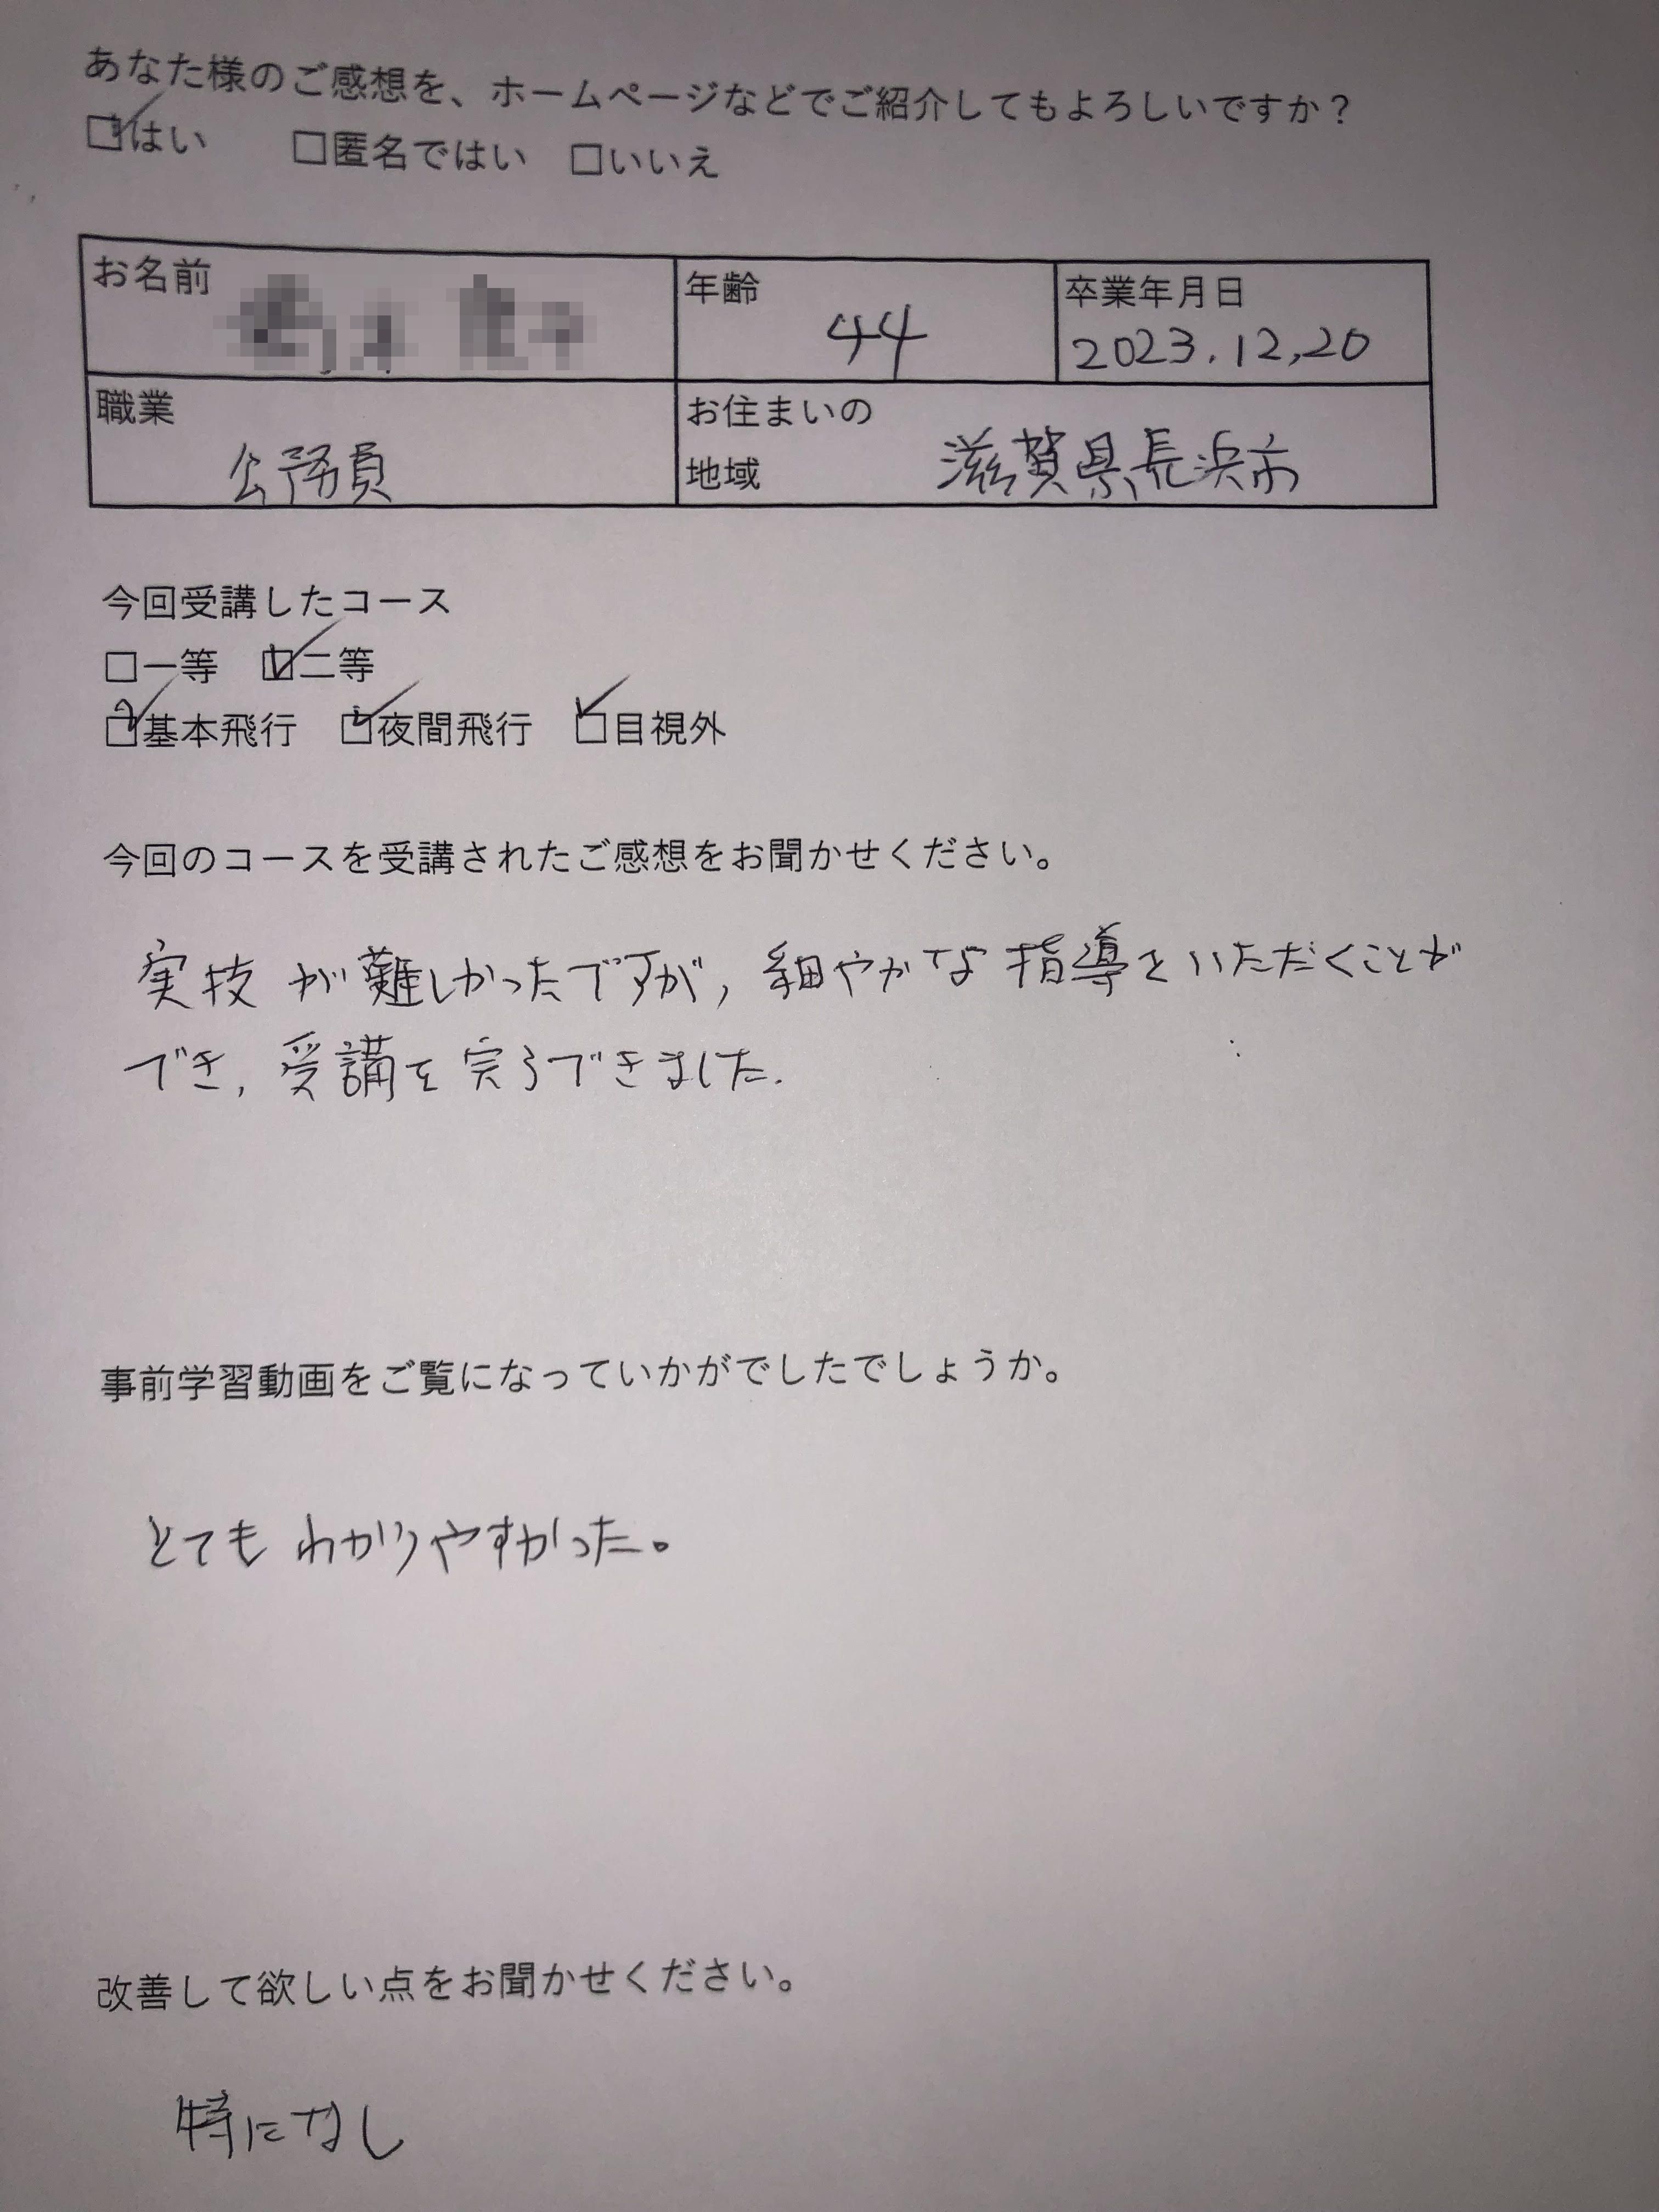 あなた様のご感想を、ホームページなどでご紹介してもよろしいですか？
☑はい　□匿名ではい　□いいえ
お名前
年齢 44
卒業年月日 2023.12,20
職業 公務員
お住まいの
地域 滋賀県長浜市
今回受講したコース
□一等　☑二等
☑基本飛行　☑夜間飛行　☑目視外
今回のコースを受講されたご感想をお聞かせください。
実技が難しかったですが, 細やかな指導をいただくことが
でき, 受講を完了できました.
事前学習動画をご覧になっていかがでしたでしょうか。
とても わかりやすかった。
改善して欲しい点をお聞かせください。
特になし